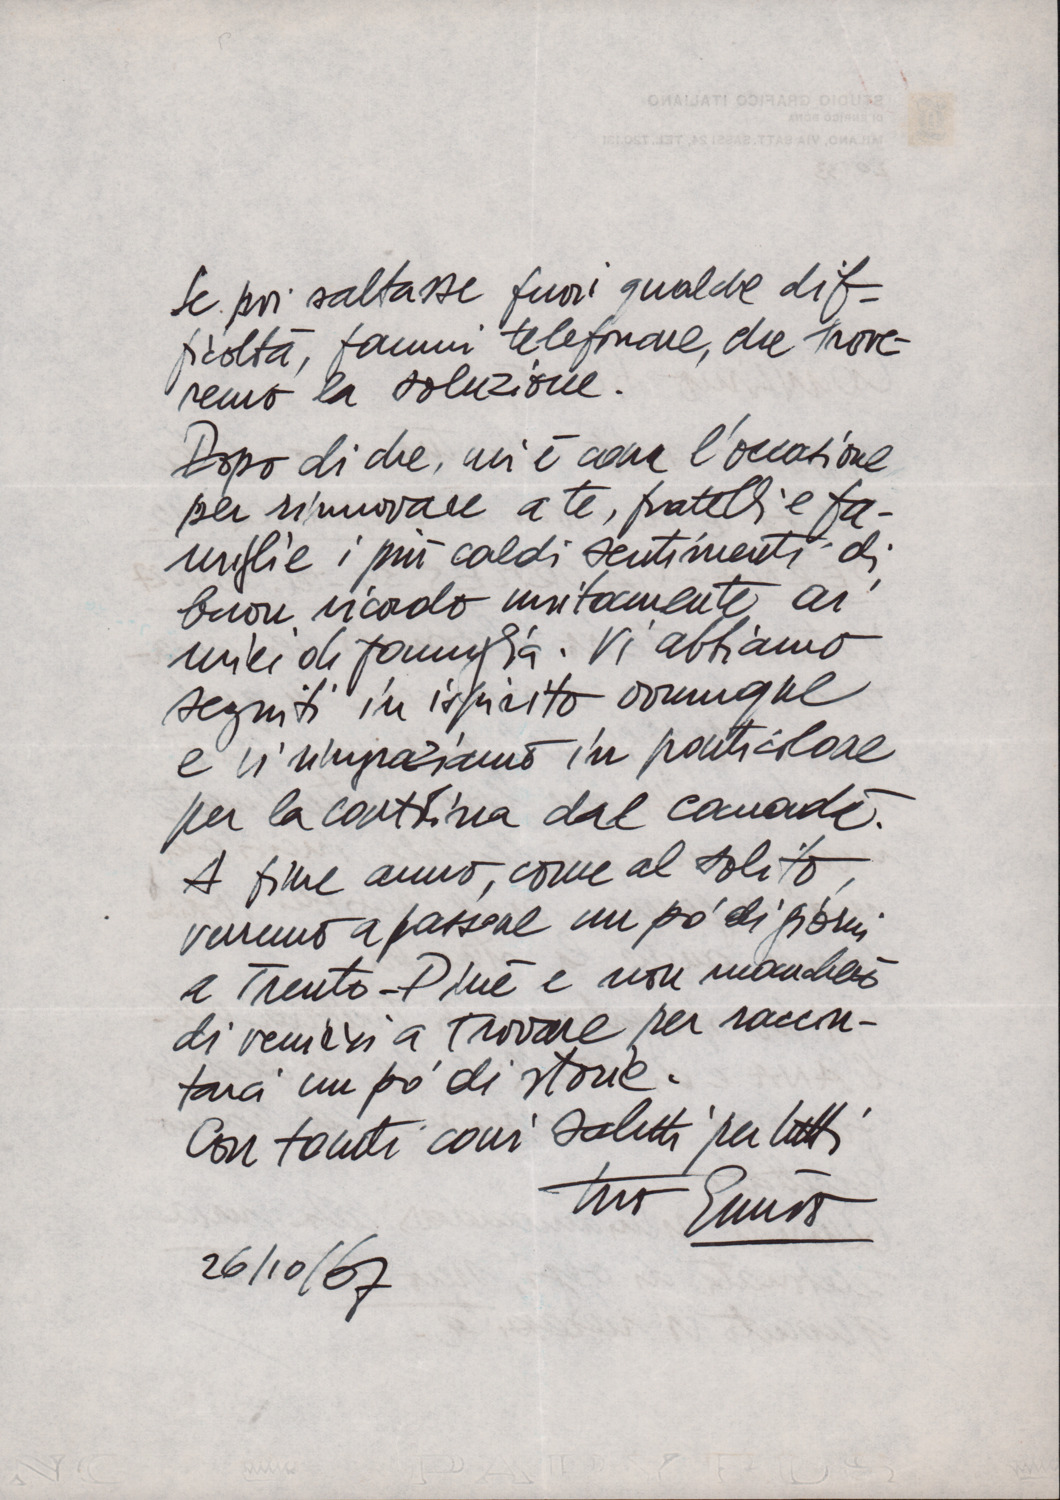 STUDIO GRAFICO ITALIANO
DI ENRICO
MILANO, VIA BATT. SASSI 24, TEL. 720.131
20133
Se poi saltasse fuori qualche dif-
ficoltà, fammi telefonare, che trove-
remo la soluzione.
Dopo di che, mi è cara l'occasione
per rinnovare a te, fratelli e fa-
miglie i più caldi sentimenti di
buon ricordo unitamente ai
miei di famiglia. Vi abbiamo
seguiti in ispirito ovunque
e vi ringraziamo in particolare
per la cartolina dal Canadà.
A fine anno, come al solito,
verremo a passare un pò di giorni
a Trento-Pinè e non mancherò
di venirvi a trovare per raccon-
tarci un pò di storie.
Con tanti cari saluti per tutti
tuo Ennio
26/10/67